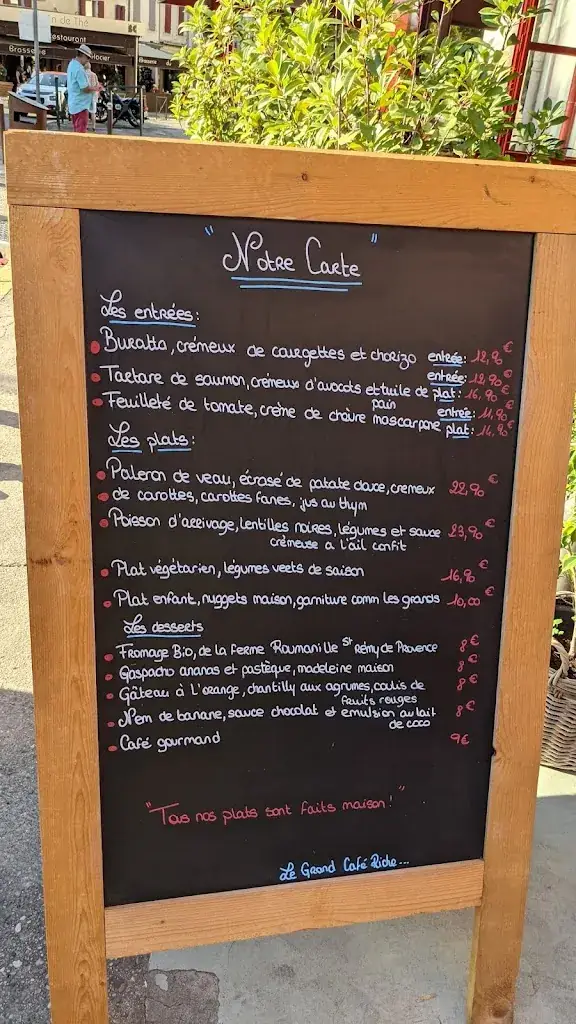 n de Thé
Restaurant
Brasserie
Glacier
" Notre Carte "
Les entrées :
Buratta, crémeux de courgettes et chorizo entrée : 12,90 €
Tartare de saumon, crémeux d'avocats et tuile de pain entrée : 12,90 € plat : 16,90 €
Feuilleté de tomate, crème de chèvre mascarpone entrée : 11,90 € plat : 14,90 €
Les plats :
Paleron de veau, écrasé de patate douce, cremeux 22,90 €
de carottes, carottes fanes, jus au thym
Poisson d'arrivage, lentilles noires, légumes et sauce 23,90 €
crémeuse a l'ail confit
Plat végétarien, légumes verts de saison 16,90 €
Plat enfant, nuggets maison, garniture comm les grands 10,00 €
Les desserts
Fromage Bio, de la ferme Roumanille St Rémy de Provence 8 €
Gaspacho ananas et pastèque, madeleine maison 8 €
Gâteau à l'orange, chantilly aux agrumes, coulis de 8 €
fruits rouges
Nem de banane, sauce chocolat et emulsion au lait 8 €
de coco
Café gourmand 9 €
"Tous nos plats sont faits maison !"
Le Grand Café Riche...